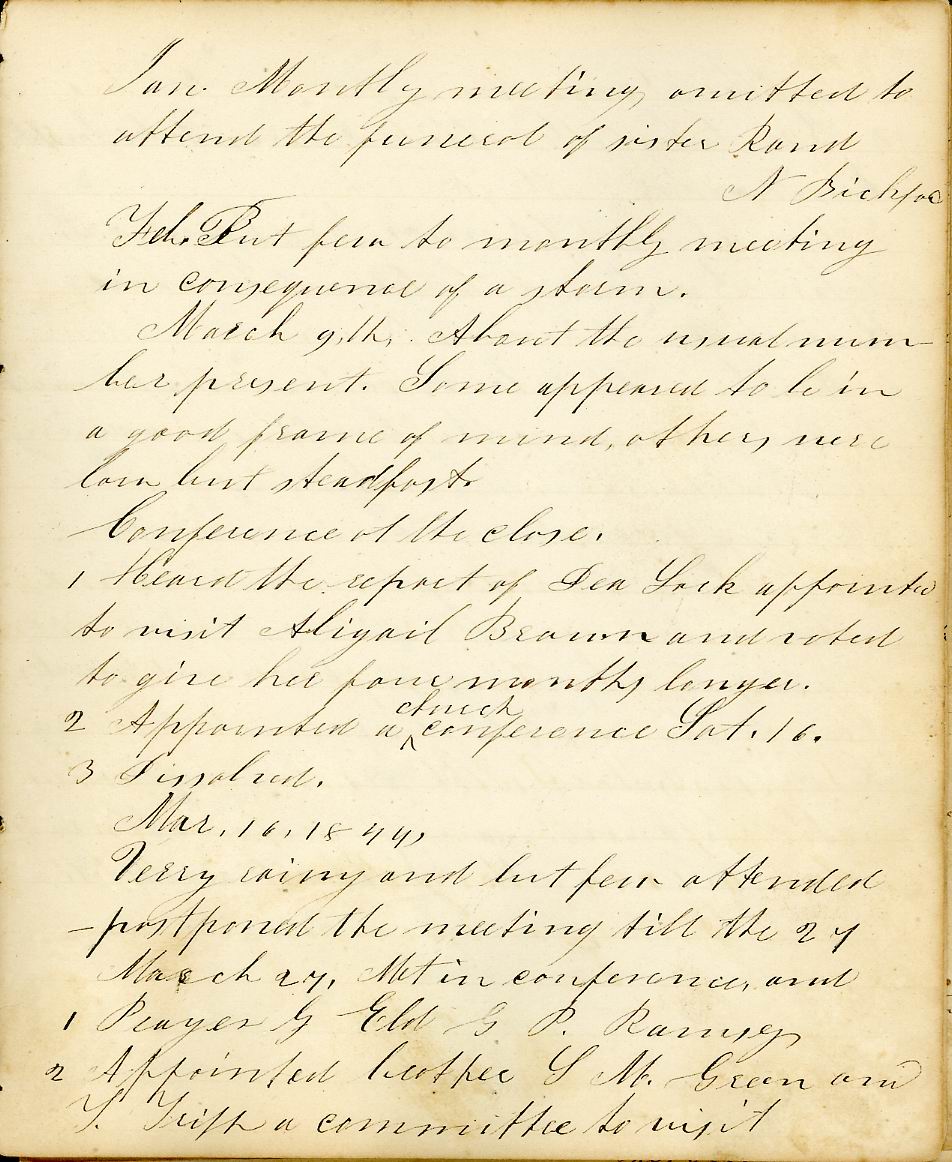 Jan. Montly meeting omitted to
attend the funeral of sister Rand
N Bickfo
Feb. But few to monthly meeting
in consequence of a storm.
March 9,th, About the usual num-
ber present. Some appeared to be in
a good frame of mind, others were
low but steadfast.
Conference at the close.
1 Heard the report of Dea Lock appointed
to visit Abigail Brown and voted
to give her four months longer.
2 Appointed a church conference Sat. 16.
3 Dissolved.
Mar. 16, 1844,
Verry rainy and but few attended
- postponed the meeting till the 27
March 27, Met in conference, and
1 Prayer by Eld G P. Ramsey
2 Appointed brother S M. Green and
T. Tripp a committee to visit